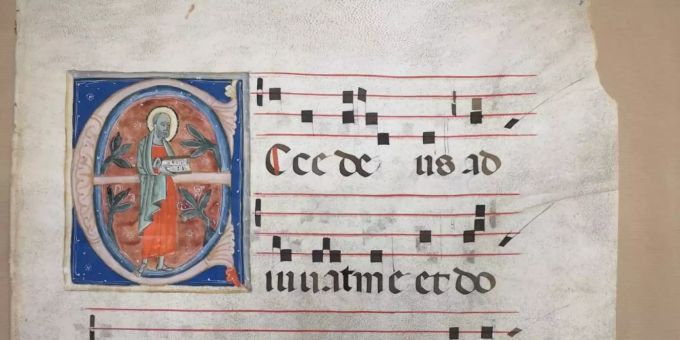 ECce de us ad
iuuat me et do